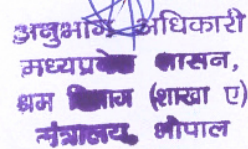 अनुभाग अधिकारी
मध्यप्रदेश शासन,
श्रम विभाग (शाखा ए)
मंत्रालय, भोपाल